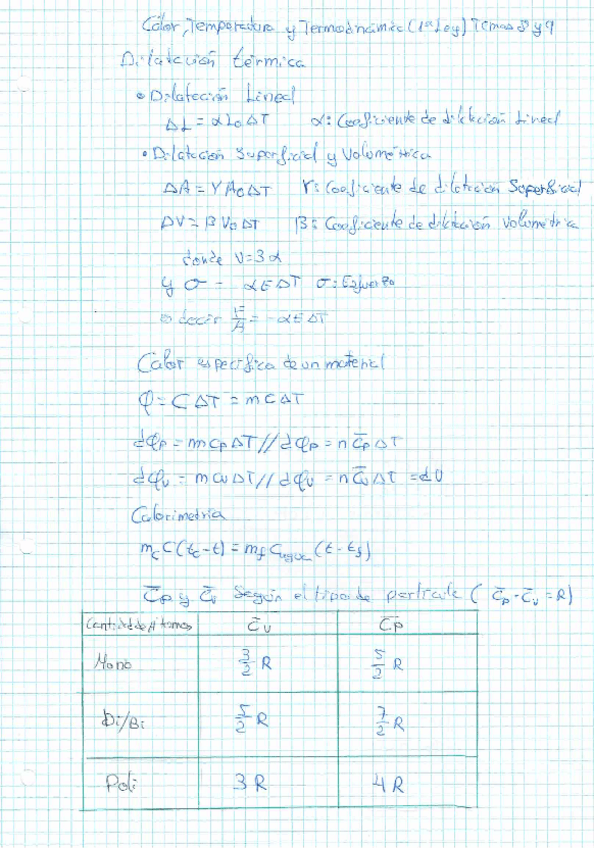 Calor, Temperatura y Termodinámica (1ª Ley) Temas 8 y 9
Dilatación térmica
• Dilatación Lineal
ΔL = αL₀ΔT α: Coeficiente de dilatación Lineal
• Dilatación Superficial y Volumétrica
ΔA = γA₀ΔT γ: Coeficiente de dilatación Superficial
ΔV = βV₀ΔT β: Coeficiente de dilatación volumétrica
donde V=3α
y σ - αEΔT σ: Esfuerzo
es decir F/A = -αEΔT
Calor específica de un material
Q = CΔT = mCΔT
dQp = mCpΔT // dQp = nC̄pΔT
dQv = mCvΔT // dQv = nC̄vΔT = dU
Calorimetria
mcC(tc-t) = mfCagua(t-tf)
C̄p y C̄v Según el tipo de partícula (C̄p-C̄v=R)
Cantidad de Átomos C̄v C̄p
Mono 3/2 R 5/2 R
Di/Bi 5/2 R 7/2 R
Poli 3R 4R